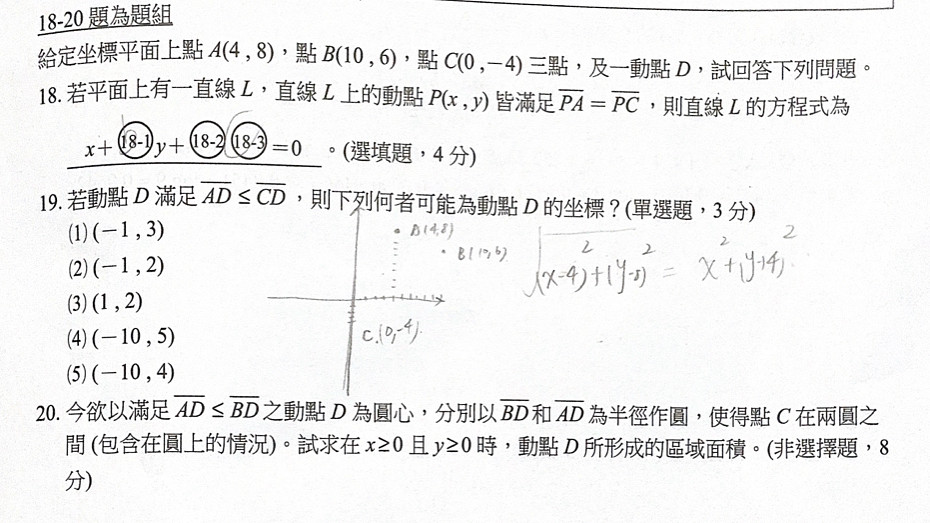 18-20 題為題組
給定坐標平面上點 A(4 , 8),點 B(10 , 6),點 C(0 ,−4) 三點,及一動點 D,試回答下列問題。
18. 若平面上有一直線 L,直線 L 上的動點 P(x , y) 皆滿足 PA = PC ,則直線 L 的方程式為
x+ 18-1 y+ 18-2 18-3 =0 。(選填題,4 分)
19. 若動點 D 滿足 AD ≤ CD ,則下列何者可能為動點 D 的坐標?(單選題,3 分)
(1) (−1 , 3)
(2) (−1 , 2)
(3) (1 , 2)
(4) (−10 , 5)
(5) (−10 , 4)
B(10,6)
C.(0,-4).
20. 今欲以滿足 AD ≤ BD 之動點 D 為圓心,分別以 BD 和 AD 為半徑作圓,使得點 C 在兩圓之
間 (包含在圓上的情況)。試求在 x≥0 且 y≥0 時,動點 D 所形成的區域面積。(非選擇題,8
分)